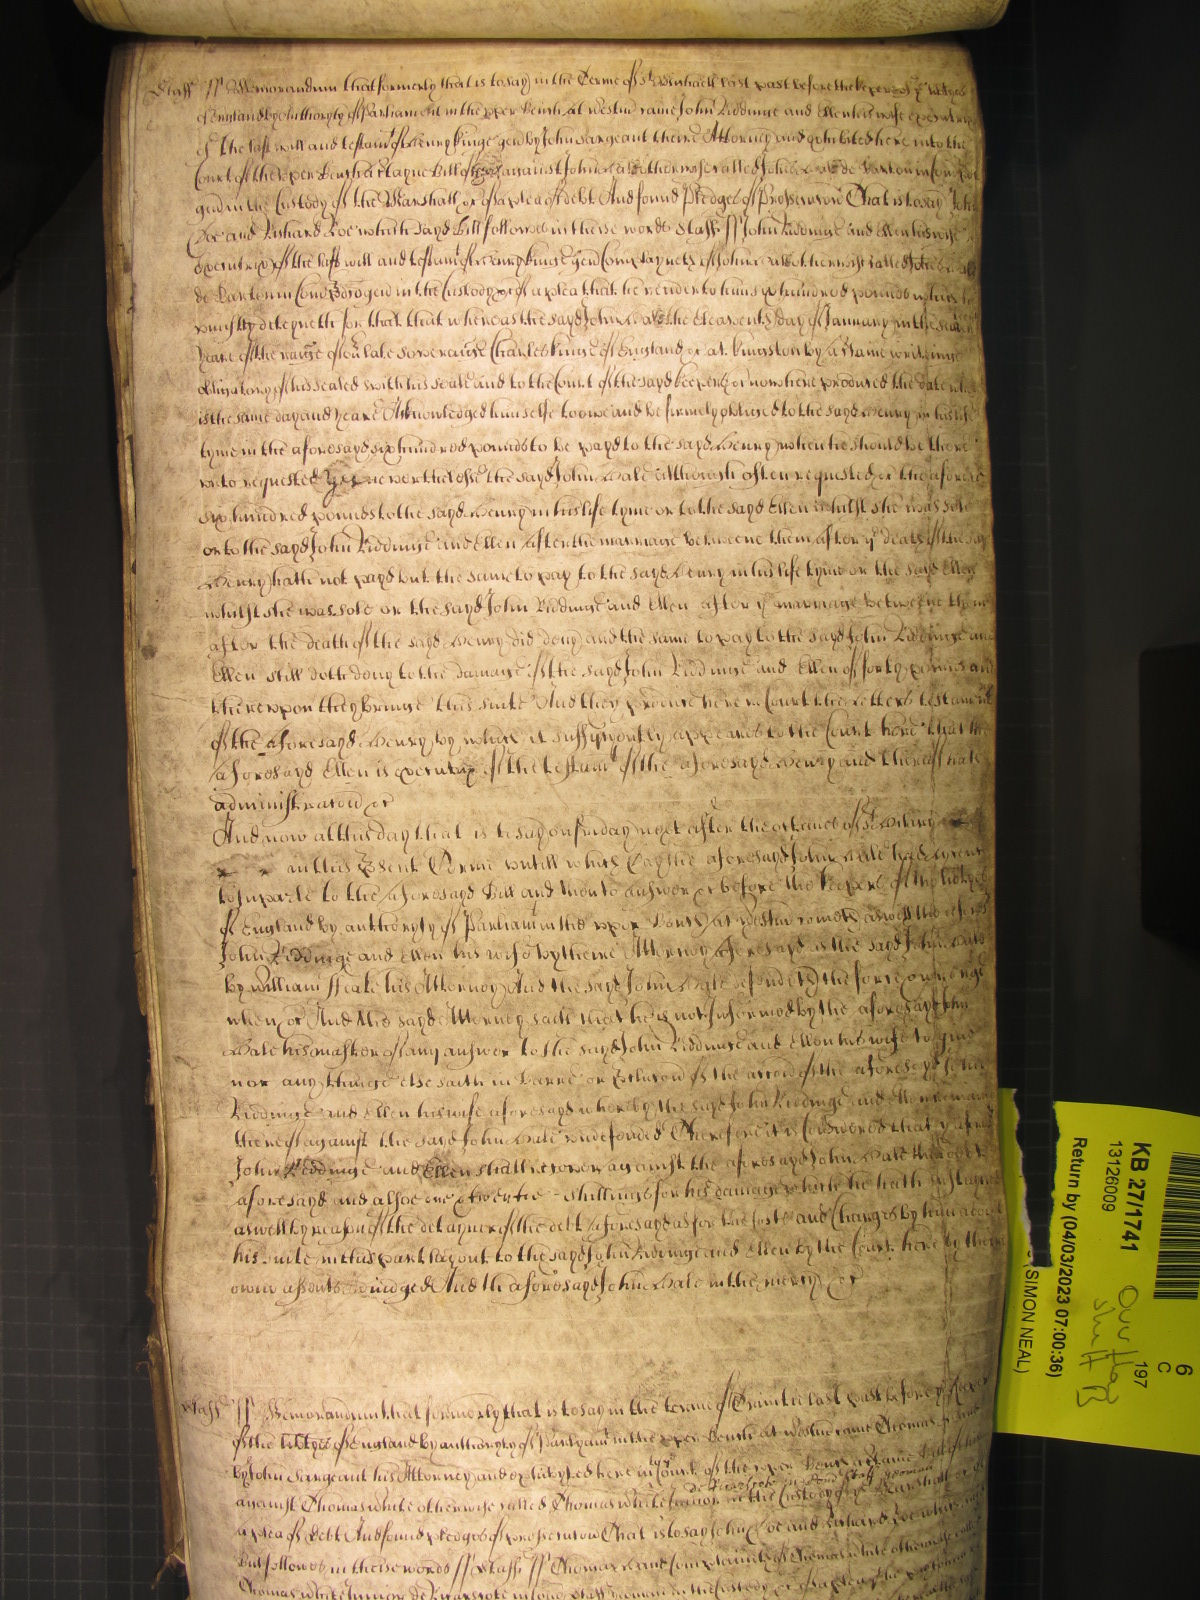 Staff ss Memorandum that formerly that is to say in the Terme of St Michaell last past before the keepers of ye libtyes
of England by Authoryty of Parliament in the vpper Bench at Westmr came John Riddinge and Ellen his wife executrix
of the last will and testamt of Henry Kinge gen by John Sargeant theire Attorney and exhibited here into the
Court of the vpper Bench a Certayne Bill against John Hale otherwise called John Hale de Barton in Com
gen in the Custody of the Marshall &c of a plea of debt And found Pledges of Prosecucion That is to say John
Doe and Richard Roe which sayd Bill followes in theise words Staff ss John Riddinge and Ellen his wife
executrix of the last will and testamt of Henry Kinge gen Complayneth of John Hale otherwise called John Hale
de Barton in Com gen in the Custody &c of a plea that he render to them six hundred pounds which he
vniustly deteyneth for that that whereas the sayd John Hale the eleaventh day of January in the
yeare of the raigne of our late Soveraigne Charles Kinge of England &c at Kingston by a certaine writinge
obligatory of his sealed with his seale and to the Court of the sayd keepers &c now here produced the date whereof
is the same day and yeare Acknowledged himselfe to owe and be firmely obliged to the sayd Henry in his life
tyme in the aforesayd six hundred pounds to be payd to the sayd Henry when he should be there
vnto requested Yet neverthelesse the sayd John Hale Although often requested &c the aforesd
six hundred pounds to the sayd Henry in his life tyme or to the sayd Ellen whilst she was sole
or to the sayd John Riddinge and Ellen after the marriage betweene them after ye death of the sayd
Henry hath not payd but the same to pay to the sayd Henry in his life tyme or the sayd Ellen
whilst she was sole or the sayd John Riddinge and Ellen after ye marriage betweene them
after the death of the sayd Henry did deny and the same to pay to the sayd John Riddinge and
Ellen still doth deny to the damage of the sayd John Riddinge and Ellen of forty pounds and
therevpon they bringe this suite And they produce here in Court the letters testamt
of the aforesayd Henry by which it suffyciently appeares to the Court here that the
aforesayd Ellen is executrix of the testamt of the aforesayd Henry and thereof hath
administracion &c
And now at this day that is to say on fryday next after the octaves of St Hillary
in this Present Terme vntill which day the aforesayd John Hale had lycence
to imparle to the aforesayd Bill and then to answer &c before the keepers of the libtyes
of England by authoryty of Parliamt in the vpper Bench at Westmr cometh aswell the aforesd
John Riddinge and Ellen his wife by theire Attorney aforesayd as the sayd John Hale
by William his Attorney And the sayd John Hale defendeth the force and wronge
when &c And the sayd Attorney saith that he is not informed by the aforesayd John
Hale his master of any answer to the sayd John Riddinge and Ellen his wife to give
nor any thinge else saith in barre or Preclusion of the accion of the aforesayd John
Riddinge and Ellen his wife aforesayd whereby the sayd John Riddinge and Ellen remaine
thereof against the sayd John Hale vndefended Therefore it is Considered that ye aforesd
John Riddinge and Ellen shall recover against the aforesayd John Hale their debt
aforesayd and alsoe one & twentie shillings for his damages which he hath sustayned
aswell by reason of the detayner of the debt aforesayd as for the costs and Charges by him about
his suite in this part layd out to the sayd John Riddinge and Ellen by the Court here by their
owne assents adiudged And the aforesayd John Hale in the mercy &c
Staff ss Memorandum that formerly that is to say in the terme of Trinitie last past before ye keepers
of the libtyes of England by authoryty of Parlyamt in the vpper Bench at Westmr came Thomas
by John Sargeant his Attorney and exhibyted here into Court of the vpper Bench a Certaine Bill
against Thomas White otherwise called Thomas White Junior in the Custody of ye Marshall &c of
a plea of debt And found pledges of prosecucion That is to say John Doe and Richard Roe which sayd
Bill followes in theise words ss Staff ss Thomas complaines of Thomas White otherwise called
Thomas White Junior de in Com Staff yeoman in the Custody &c of a plea
KB 27/1741
13126009
Return by (04/03/2023 07:00:36)
(SIMON NEAL)
6
C
197